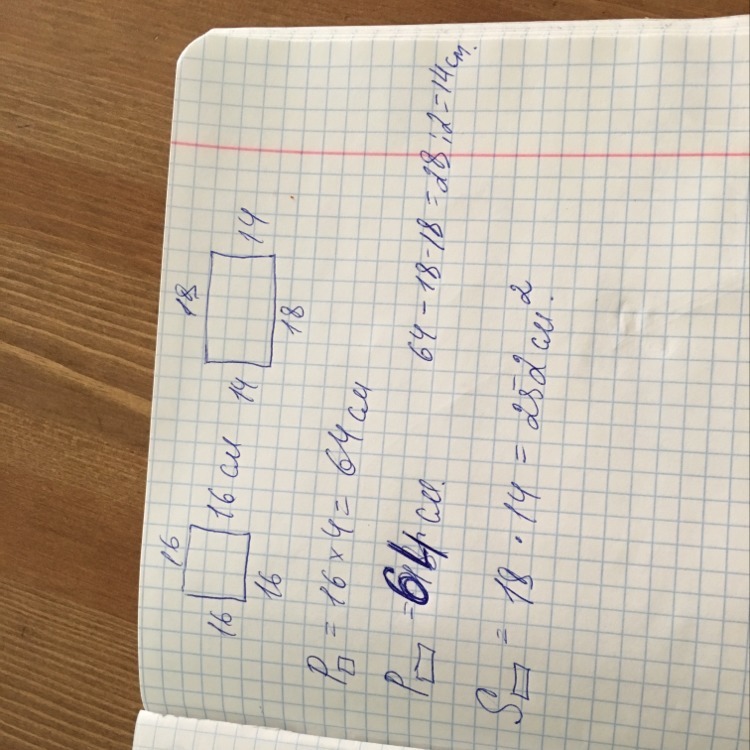 16 18
16 16 см 14 14
16 18
P□ = 16 × 4 = 64 см
P▭ = 64 см. 64 - 18 - 18 = 28 : 2 = 14 см.
S▭ = 18 · 14 = 252 см.²